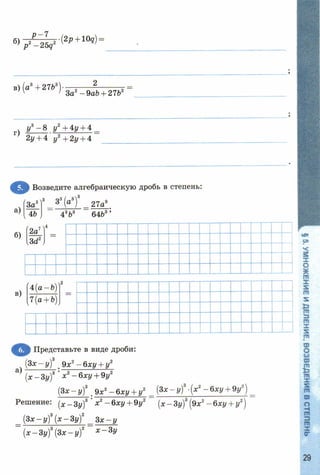 б) \frac{p-7}{p^2-25q^2}·(2p+10q)=
;
в) (a^3+27b^3)·\frac{2}{3a^2-9ab+27b^2}=
;
г) \frac{y^3-8}{2y+4}·\frac{y^2+4y+4}{y^2+2y+4}=
.
5. Возведите алгебраическую дробь в степень:
а) (\frac{3a^2}{4b})^3=\frac{3^3(a^2)^3}{4^3b^3}=\frac{27a^6}{64b^3};
б) (\frac{2a^7}{3d^2})^4=
в) (\frac{4(a-b)}{7(a+b)})^2=
6. Представьте в виде дроби:
а) \frac{(3x-y)^3}{(x-3y)^3}:\frac{9x^2-6xy+y^2}{x^2-6xy+9y^2}
Решение: \frac{(3x-y)^3}{(x-3y)^3}:\frac{9x^2-6xy+y^2}{x^2-6xy+9y^2}=\frac{(3x-y)^3·(x^2-6xy+9y^2)}{(x-3y)^3(9x^2-6xy+y^2)}=
=\frac{(3x-y)^3(x-3y)^2}{(x-3y)^3(3x-y)^2}=\frac{3x-y}{x-3y}
§ 5. УМНОЖЕНИЕ И ДЕЛЕНИЕ. ВОЗВЕДЕНИЕ В СТЕПЕНЬ
29